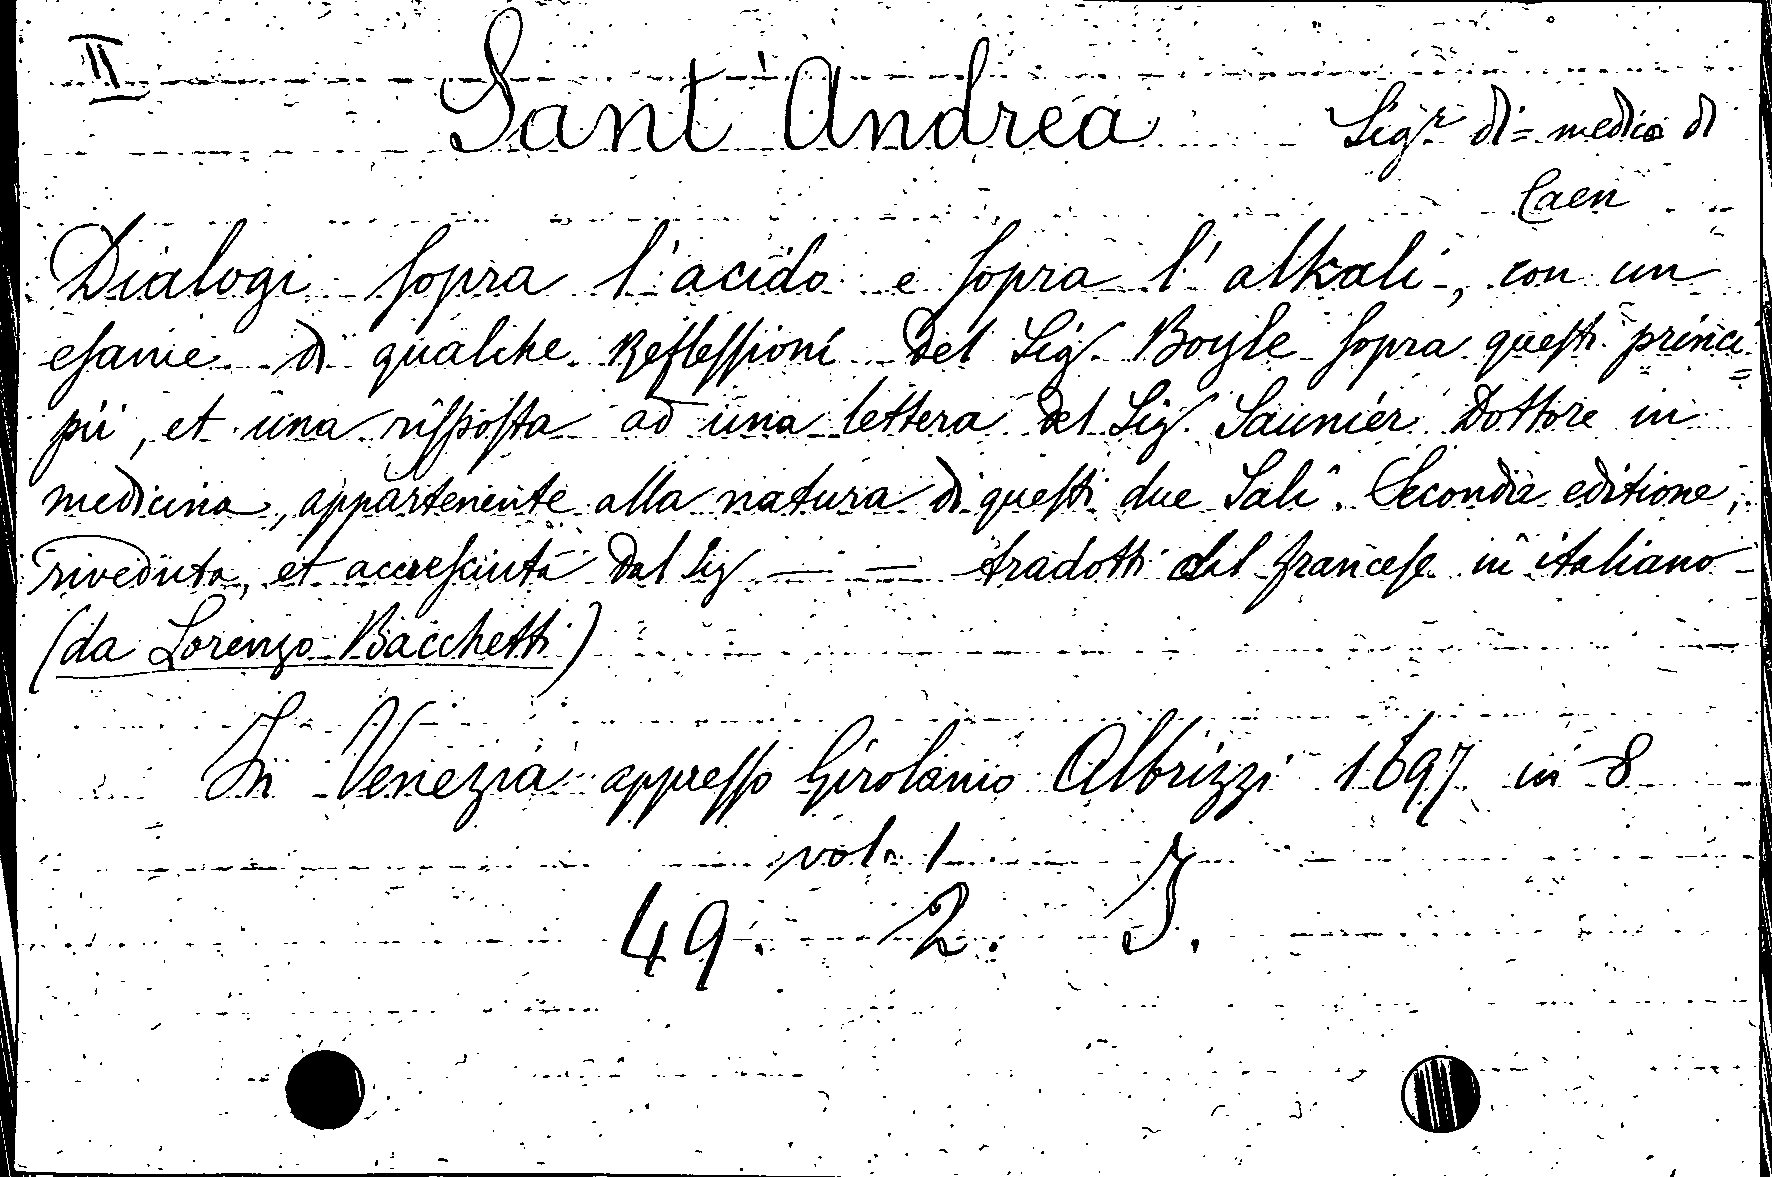 II Sant' Andrea Sig.r di = medico di
Caen
Dialogi ſopra l'acido e ſopra l'alkali, con un
eſame di qualche Refleſſioni del Sig. Boyle ſopra queſti princi=
pii, et una riſpoſta ad una lettera del Sig. Saunier Dottore in
medicina, appartenente alla natura di queſti due Sali. Seconda editione,
riveduta, et accreſciuta dal Sig — — tradotti dal franceſe in italiano
(da Lorenzo Bacchetti)
In Venezia appreſſo Girolamo Albrizzi 1697 in 8
vol. 1
49. 2. J.